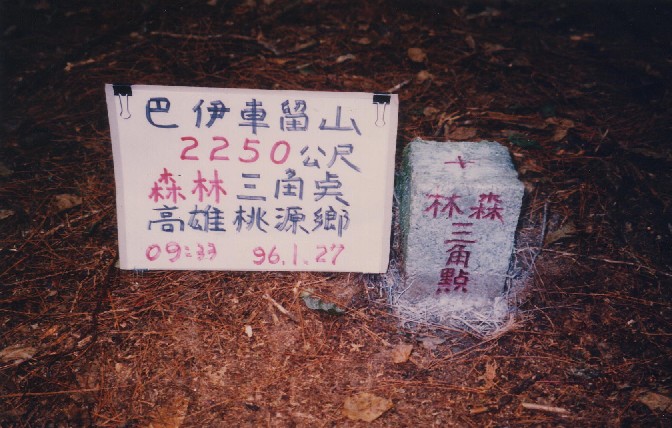 巴伊車留山
2250公尺
森林三角点
高雄桃源鄉
09:33 96.1.27
十
森林
三角點